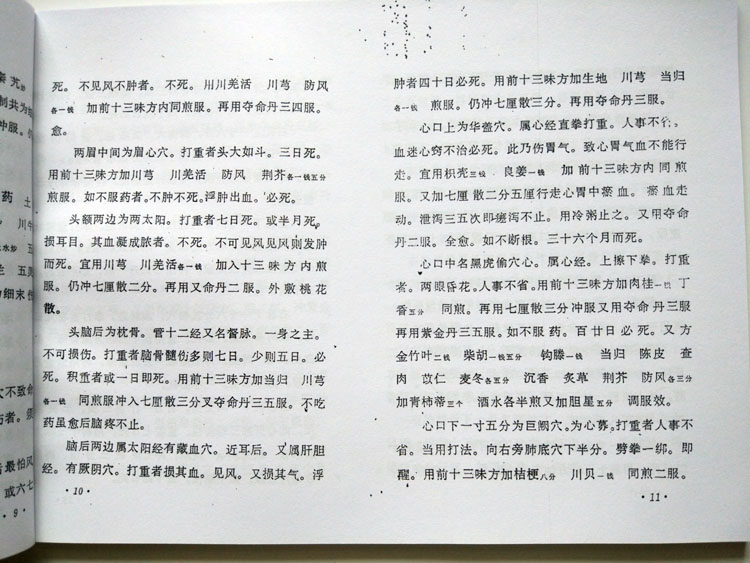 秦艽
制共为
冲服。
药 土
川牛
水炒 五
兰 五
为细末
大不致命
药者。须
最怕风
或六七
· 9 ·
死。不见风不肿者。不死。用川羌活 川芎 防风
各一钱 加前十三味方内同煎服。再用夺命丹三四服。
愈。
两眉中间为眉心穴。打重者头大如斗。三日死。
用前十三味方加川芎 川羌活 防风 荆芥各一钱五分
煎服。如不服药者。不肿不死。浮肿出血。必死。
头额两边为两太阳。打重者七日死。或半月死。
损耳目。其血凝成脓者。不死。不可见风见风则发肿
而死。宜用川芎 川羌活各一钱 加入十三味方内煎
服。仍冲七厘散二分。再用又命丹二服。外敷桃花
散。
头脑后为枕骨。管十二经又名督脉。一身之主。
不可损伤。打重者脑骨髓伤多则七日。少则五日。必
死。积重者或一日即死。用前十三味方加当归 川芎
各一钱 同煎服冲入七厘散三分叉夺命丹三五服。不吃
药虽愈后脑疼不止。
脑后两边属太阳经有藏血穴。近耳后。又属肝胆
经。有厥阴穴。打重者损其血。见风。又损其气。浮
· 10 ·
肿者四十日必死。用前十三味方加生地 川芎 当归
各一钱 煎服。仍冲七厘散三分。再用夺命丹三服。
心口上为华盖穴。属心经直拳打重。人事不行。
血迷心窍不治必死。此乃伤胃气。致心胃气血不能行
走。宜用枳壳三钱 良姜一钱 加前十三味方内同煎
服。又加七厘散二分五厘行走心胃中瘀血。瘀血走
动。泄泻三五次即瘥泻不止。用冷粥止之。又用夺命
丹二服。全愈。如不断根。三十六个月而死。
心口中名黑虎偷穴心。属心经。上擦下拳。打重
者。两眼昏花。人事不省。用前十三味方加肉桂一钱 丁
香五分 同煎。再用七厘散三分冲服又用夺命丹三服
再用紫金丹三五服。如不服药。百廿日必死。又方
金竹叶二钱 柴胡一钱五分 钩藤一钱 当归 陈皮 查
肉 苡仁 麦冬各五分 沉香 炙草 荆芥 防风各三分
加青柿蒂三个 酒水各半煎又加胆星五分 调服效。
心口下一寸五分为巨阙穴。为心募。打重者人事不
省。当用打法。向右旁肺底穴下半分。劈拳一绑。即
醒。用前十三味方加桔梗八分 川贝一钱 同煎二服。
· 11 ·